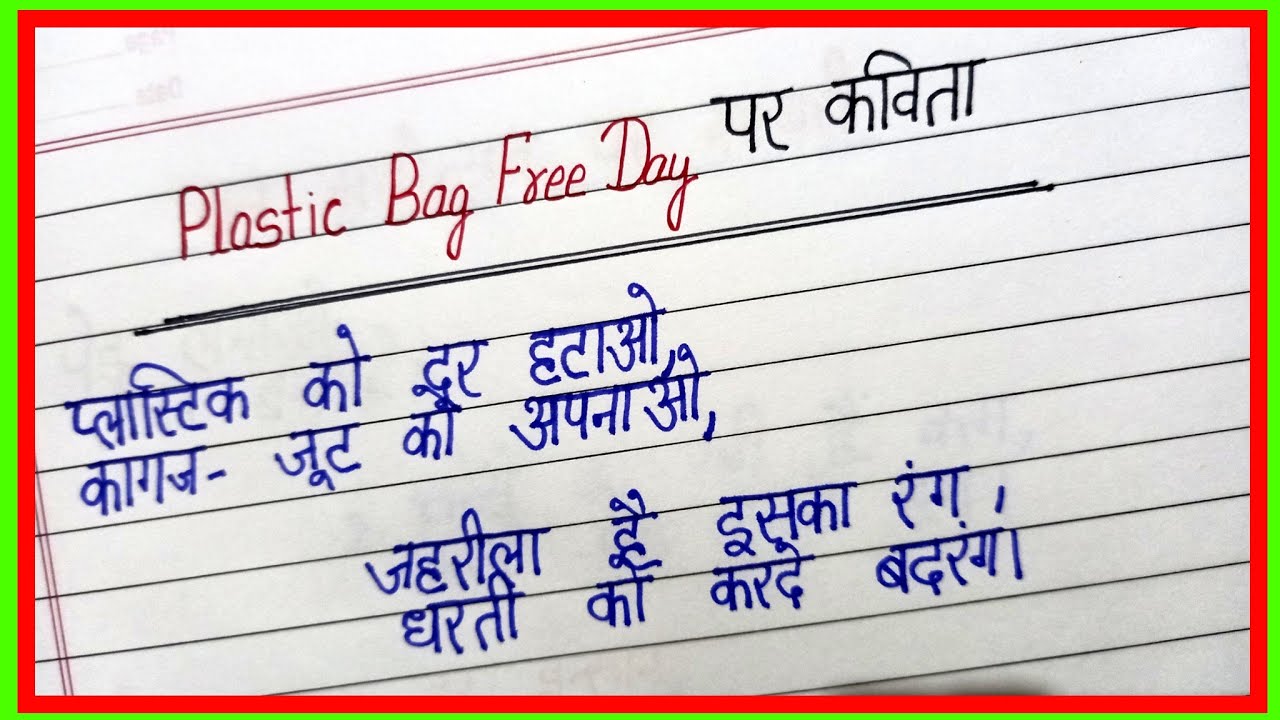 Page
Date
Plastic Bag Free Day पर कविता
प्लास्टिक को दूर हटाओ,
कागज- जूट को अपनाओ,
जहरीला है इसका रंग,
धरती को करदे बदरंग।